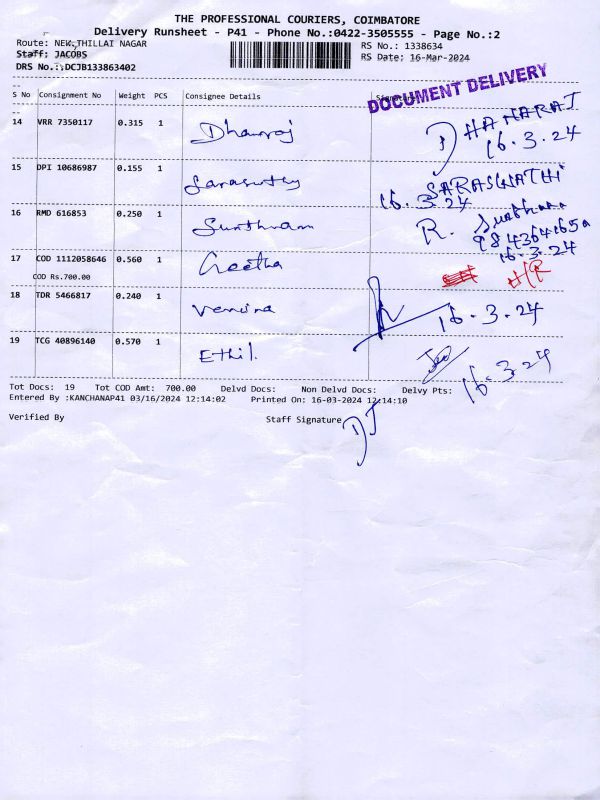 THE PROFESSIONAL COURIERS, COIMBATORE
Delivery Runsheet - P41 - Phone No.:0422-3505555 - Page No.:2
Route: NEW THILLAI NAGAR
RS No.: 1338634
Staff: JACOBS
RS Date: 16-Mar-2024
DRS No.:DCJB133863402
DOCUMENT DELIVERY
S No Consignment No Weight PCS Consignee Details Signature
14 VRR 7350117 0.315 1 Dhanraj DHANARAJ
16.3.24
15 DPI 10686987 0.155 1 Saraswathy SARASWATHI
16.3.24
16 RMD 616853 0.250 1 R.
16.3.24
17 COD 1112058646 0.560 1 Geetha
COD Rs.700.00
18 TDR 5466817 0.240 1 16.3.24
19 TCG 40896140 0.570 1 Ethil.
16.3.24
Tot Docs: 19 Tot COD Amt: 700.00 Delvd Docs: Non Delvd Docs: Delvy Pts:
Entered By :KANCHANAP41 03/16/2024 12:14:02 Printed On: 16-03-2024 12:14:10
Verified By Staff Signature